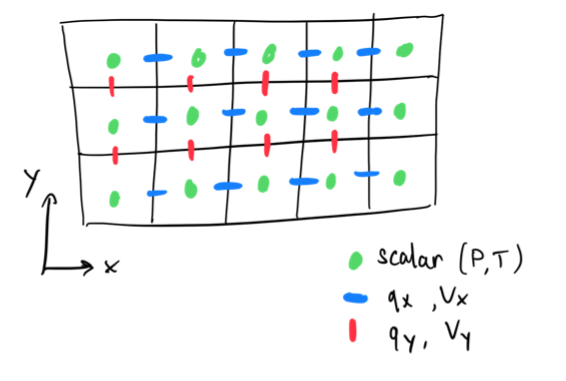 Y
x
scalar (P,T)
qx , Vx
qy, Vy